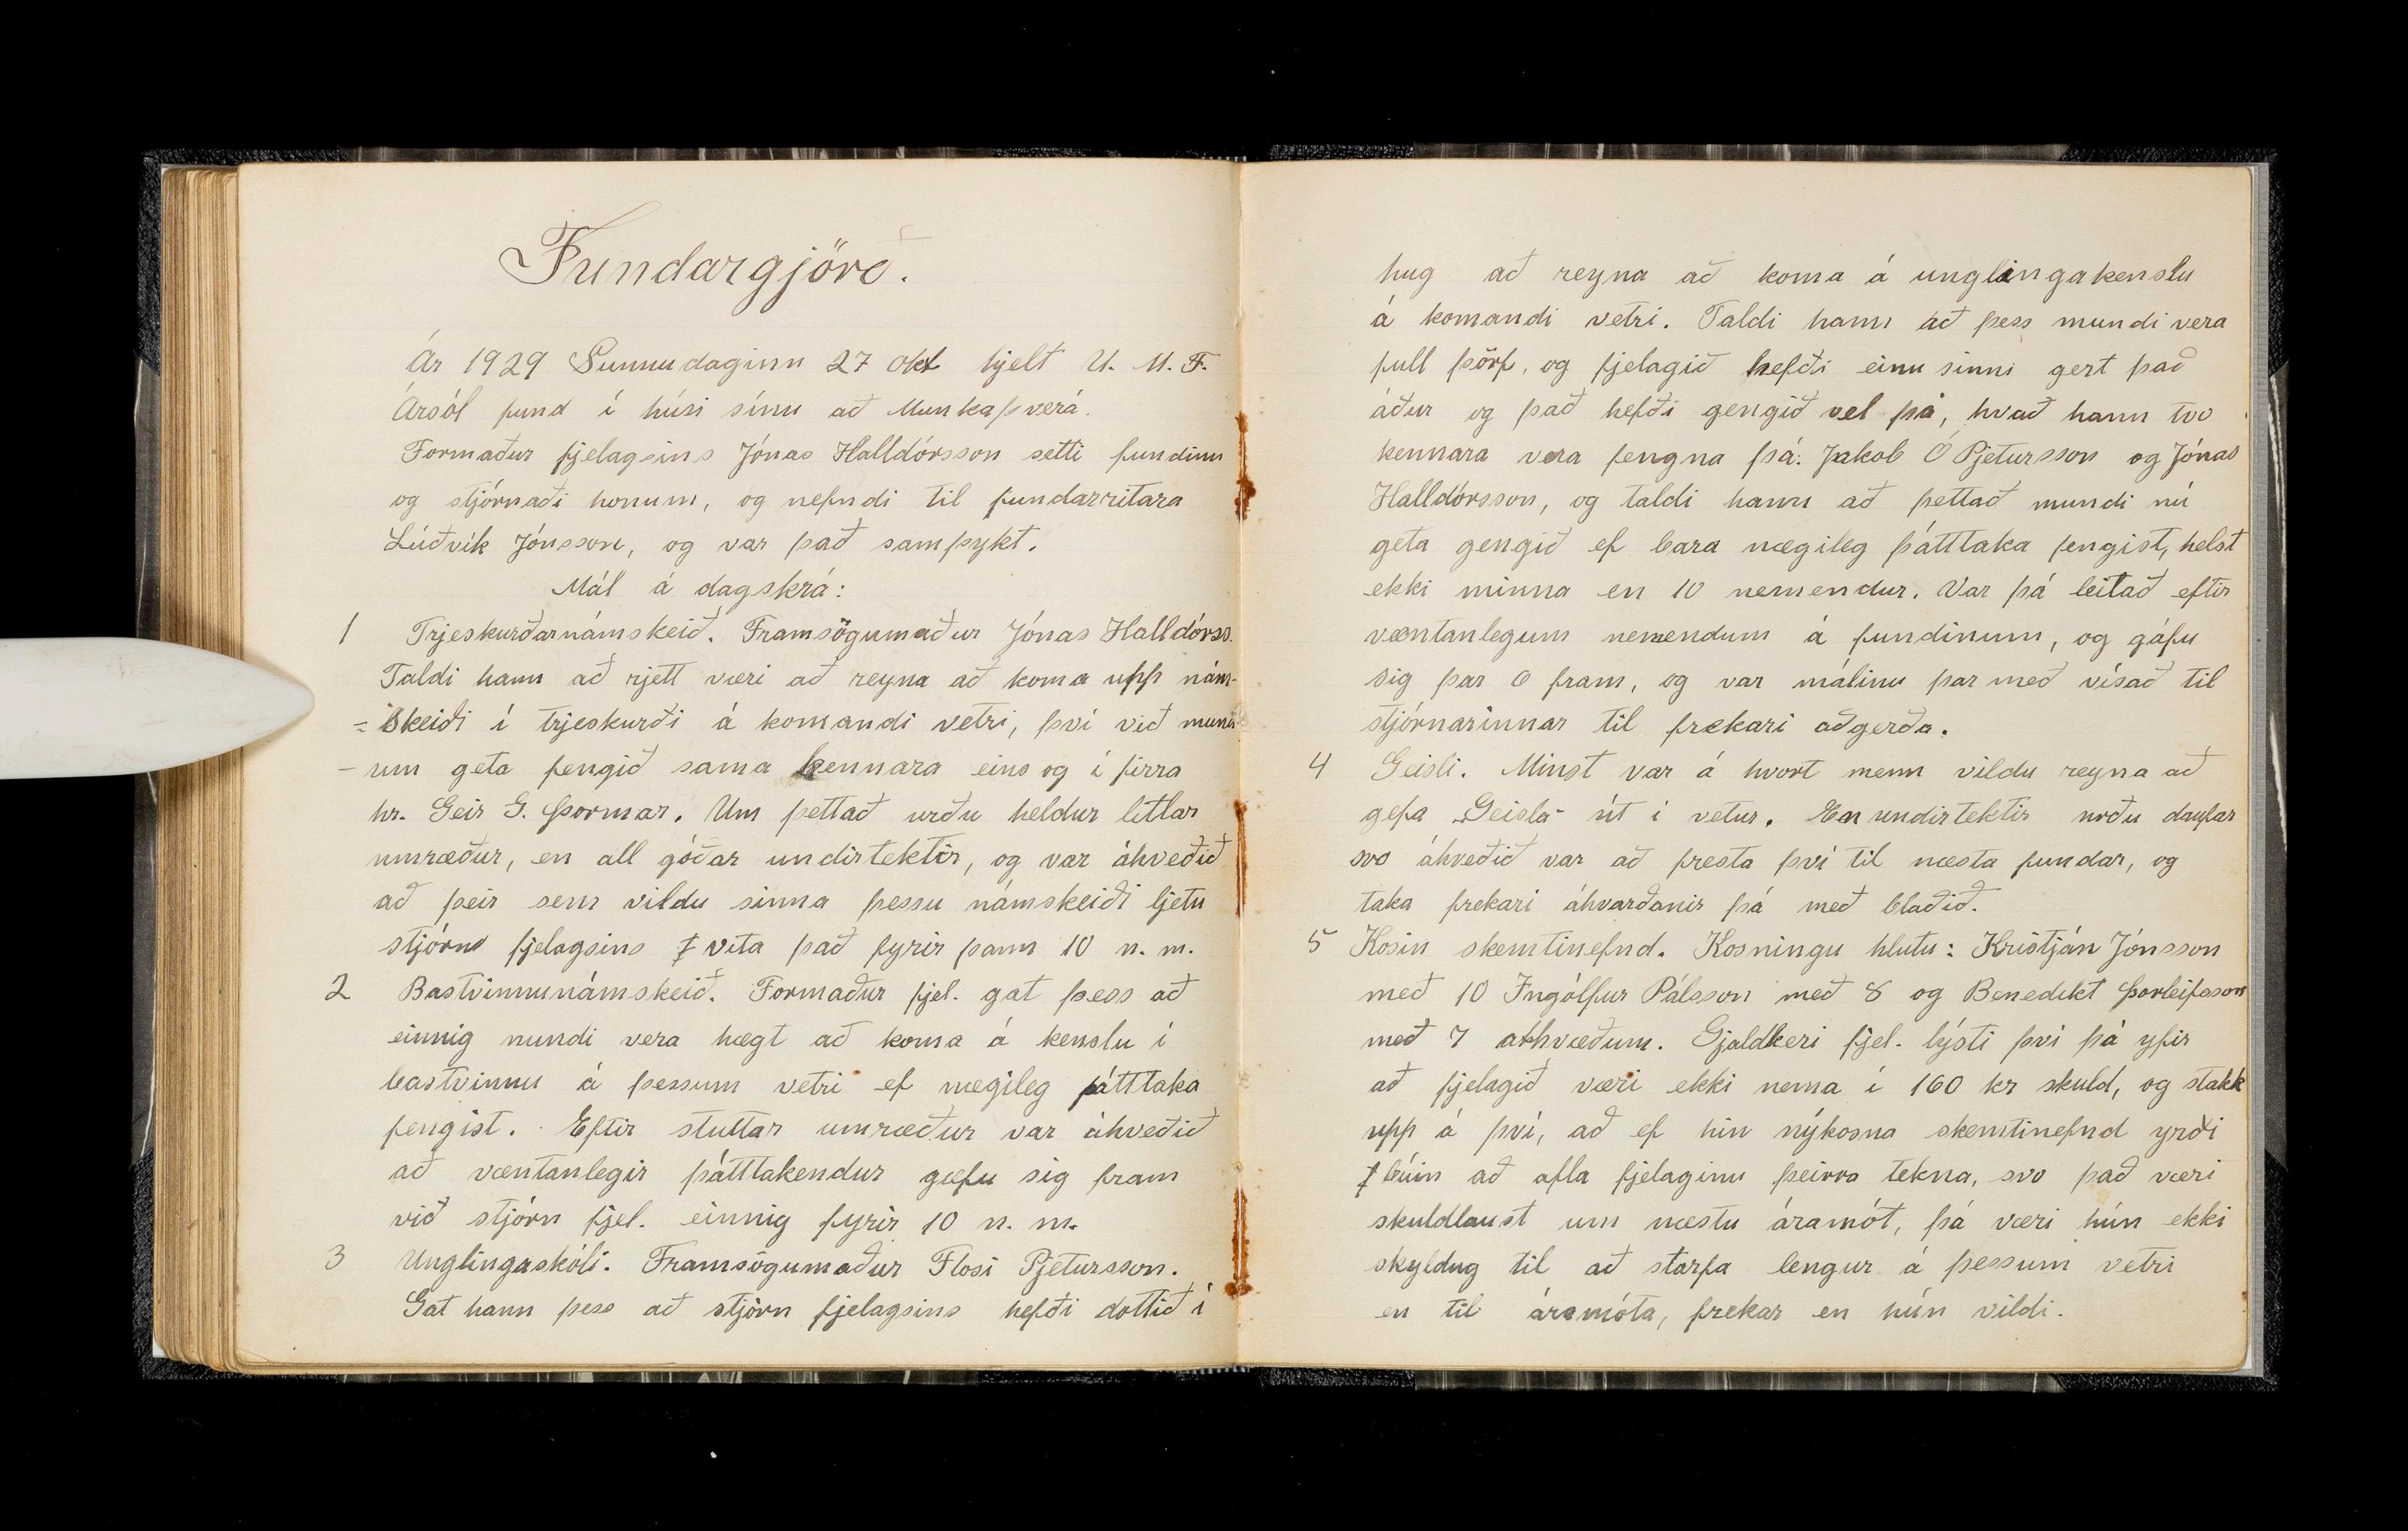 Fundargjörð.
Ár 1929 Sunnudaginn 27 okt hjelt U. M. F.
Ársól fund í húsi sínu að Munkaþverá.
Formaður fjelagsins Jónas Halldórsson setti fundinn
og stjórnaði honum, og nefndi til fundarritara
Lúðvík Jónsson, og var það samþykt.
Mál á dagskrá:
1 Trjeskurðarnámskeið. Framsögumaður Jónas Halldórss.
Taldi hann að rjett væri að reyna að koma upp nám-
=skeiði í trjeskurði á komandi vetri, því við mund
-um geta fengið sama kennara eins og í firra
hr. Geir G. Þormar. Um þettað urðu heldur litlar
umræður, en all góðar undirtektir, og var áhveðið
að þeir sem vildu sinna þessu námskeiði ljetu
stjórn fjelagsins vita það fyrir þann 10 n. m.
2 Bastvinnunámskeið. Formaður fjel. gat þess að
einnig mundi vera hægt að koma á kenslu í
bastvinnu á þessum vetri ef nægileg þátttaka
fengist. Eftir stuttar umræður var áhveðið
að væntanlegir þátttakendur gæfu sig fram
við stjórn fjel. einnig fyrir 10 n. m.
3 Unglingaskóli. Framsögumaður Flosi Pjetursson.
Gat hann þess að stjórn fjelagsins hefði dottið í
hug að reyna að koma á unglingakenslu
á komandi vetri. Taldi hann að þess mundi vera
full þörf, og fjelagið hefði einu sinni gert það
áður og það hefði gengið vel þá, hvað hann tvo
kennara vera fengna þá: Jakob Ó Pjetursson og Jónas
Halldórsson, og taldi hann að þettað mundi nú
geta gengið ef bara nægileg þátttaka fengist, helst
ekki minna en 10 nemendur. Var þá leitað eftir
væntanlegum nemendum á fundinum, og gáfu
sig þar 0 fram, og var málinu þar með vísað til
stjórnarinnar til frekari aðgerða.
4 Geisli. Minst var á hvort menn vildu reyna að
gefa „Geisla" út í vetur. En undirtektir urðu daufar
svo áhveðið var að fresta því til næsta fundar, og
taka frekari áhvarðanir þá með blaðið.
5 Kosin skemtinefnd. Kosningu hlutu: Kristján Jónsson
með 10 Ingólfur Pálsson með 8 og Benedikt Þorleifsson
með 7 athvæðum. Gjaldkeri fjel. lýsti því þá yfir
að fjelagið væri ekki nema í 160 kr skuld, og stakk
upp á því, að ef hin nýkosna skemtinefnd yrði
búin að afla fjelaginu þeirra tekna, svo það væri
skuldlaust um næstu áramót, þá væri hún ekki
skyldug til að starfa lengur á þessum vetri
en til áramóta, frekar en hún vildi.